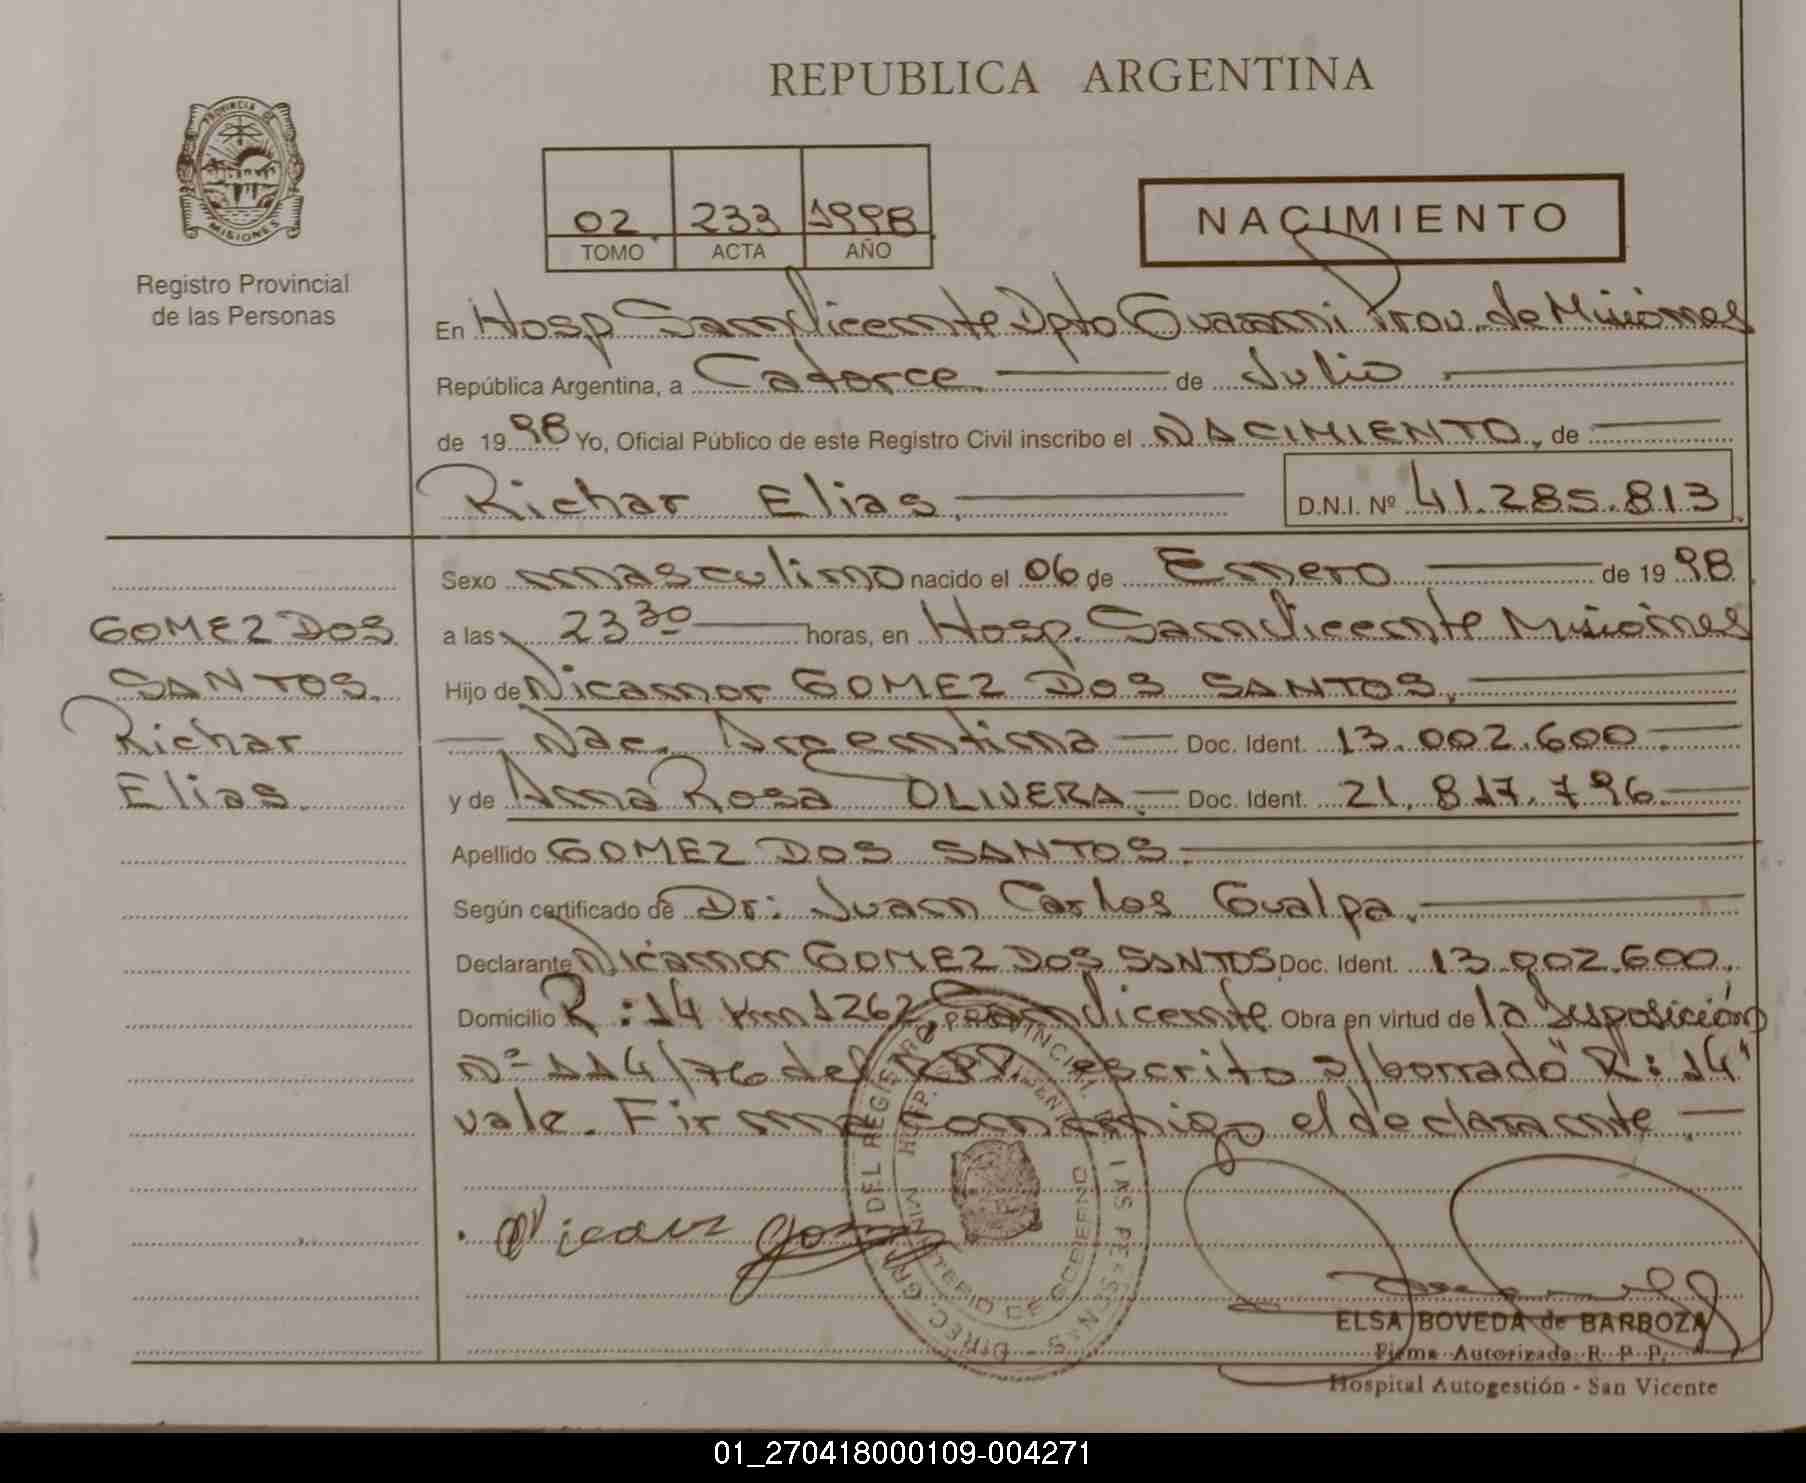 REPUBLICA ARGENTINA
PROVINCIA DE
MISIONES
Registro Provincial
de las Personas
02 233 1998
TOMO ACTA AÑO
NACIMIENTO
En Hosp San Vicente Dpto Guarani Prov. de Misiones
República Argentina, a Catorce de Julio
de 19 98 Yo, Oficial Público de este Registro Civil inscribo el NACIMIENTO, de
Richar Elias. D.N.I. Nº 41.285.813
Sexo masculino nacido el 06 de Enero de 19 98.
a las 23 30 horas, en Hosp. San Vicente Misiones
Hijo de Nicanor GOMEZ DOS SANTOS.
Nac. Argentina Doc. Ident. 13.002.600.
y de Anna Rosa OLIVERA. Doc. Ident. 21.817.796.
Apellido GOMEZ DOS SANTOS.
Según certificado de Dr: Juan Carlos Gualpa.
Declarante Nicanor GOMEZ DOS SANTOS Doc. Ident. 13.002.600.
Domicilio R:14 km 1262, San Vicente. Obra en virtud de la disposición
Nº 114/76 del RPP, escrito s/borrado "R:14"
vale. Firma conmigo el declarante.
GOMEZ DOS
SANTOS.
Richar
Elias.
DIREC. GRAL. DEL REGISTRO PROVINCIAL DE LAS PERSONAS
MINISTERIO DE GOBIERNO
ELSA BOVEDA de BARBOZA
Firma Autorizada R. P. P.
Hospital Autogestión - San Vicente
01_270418000109-004271